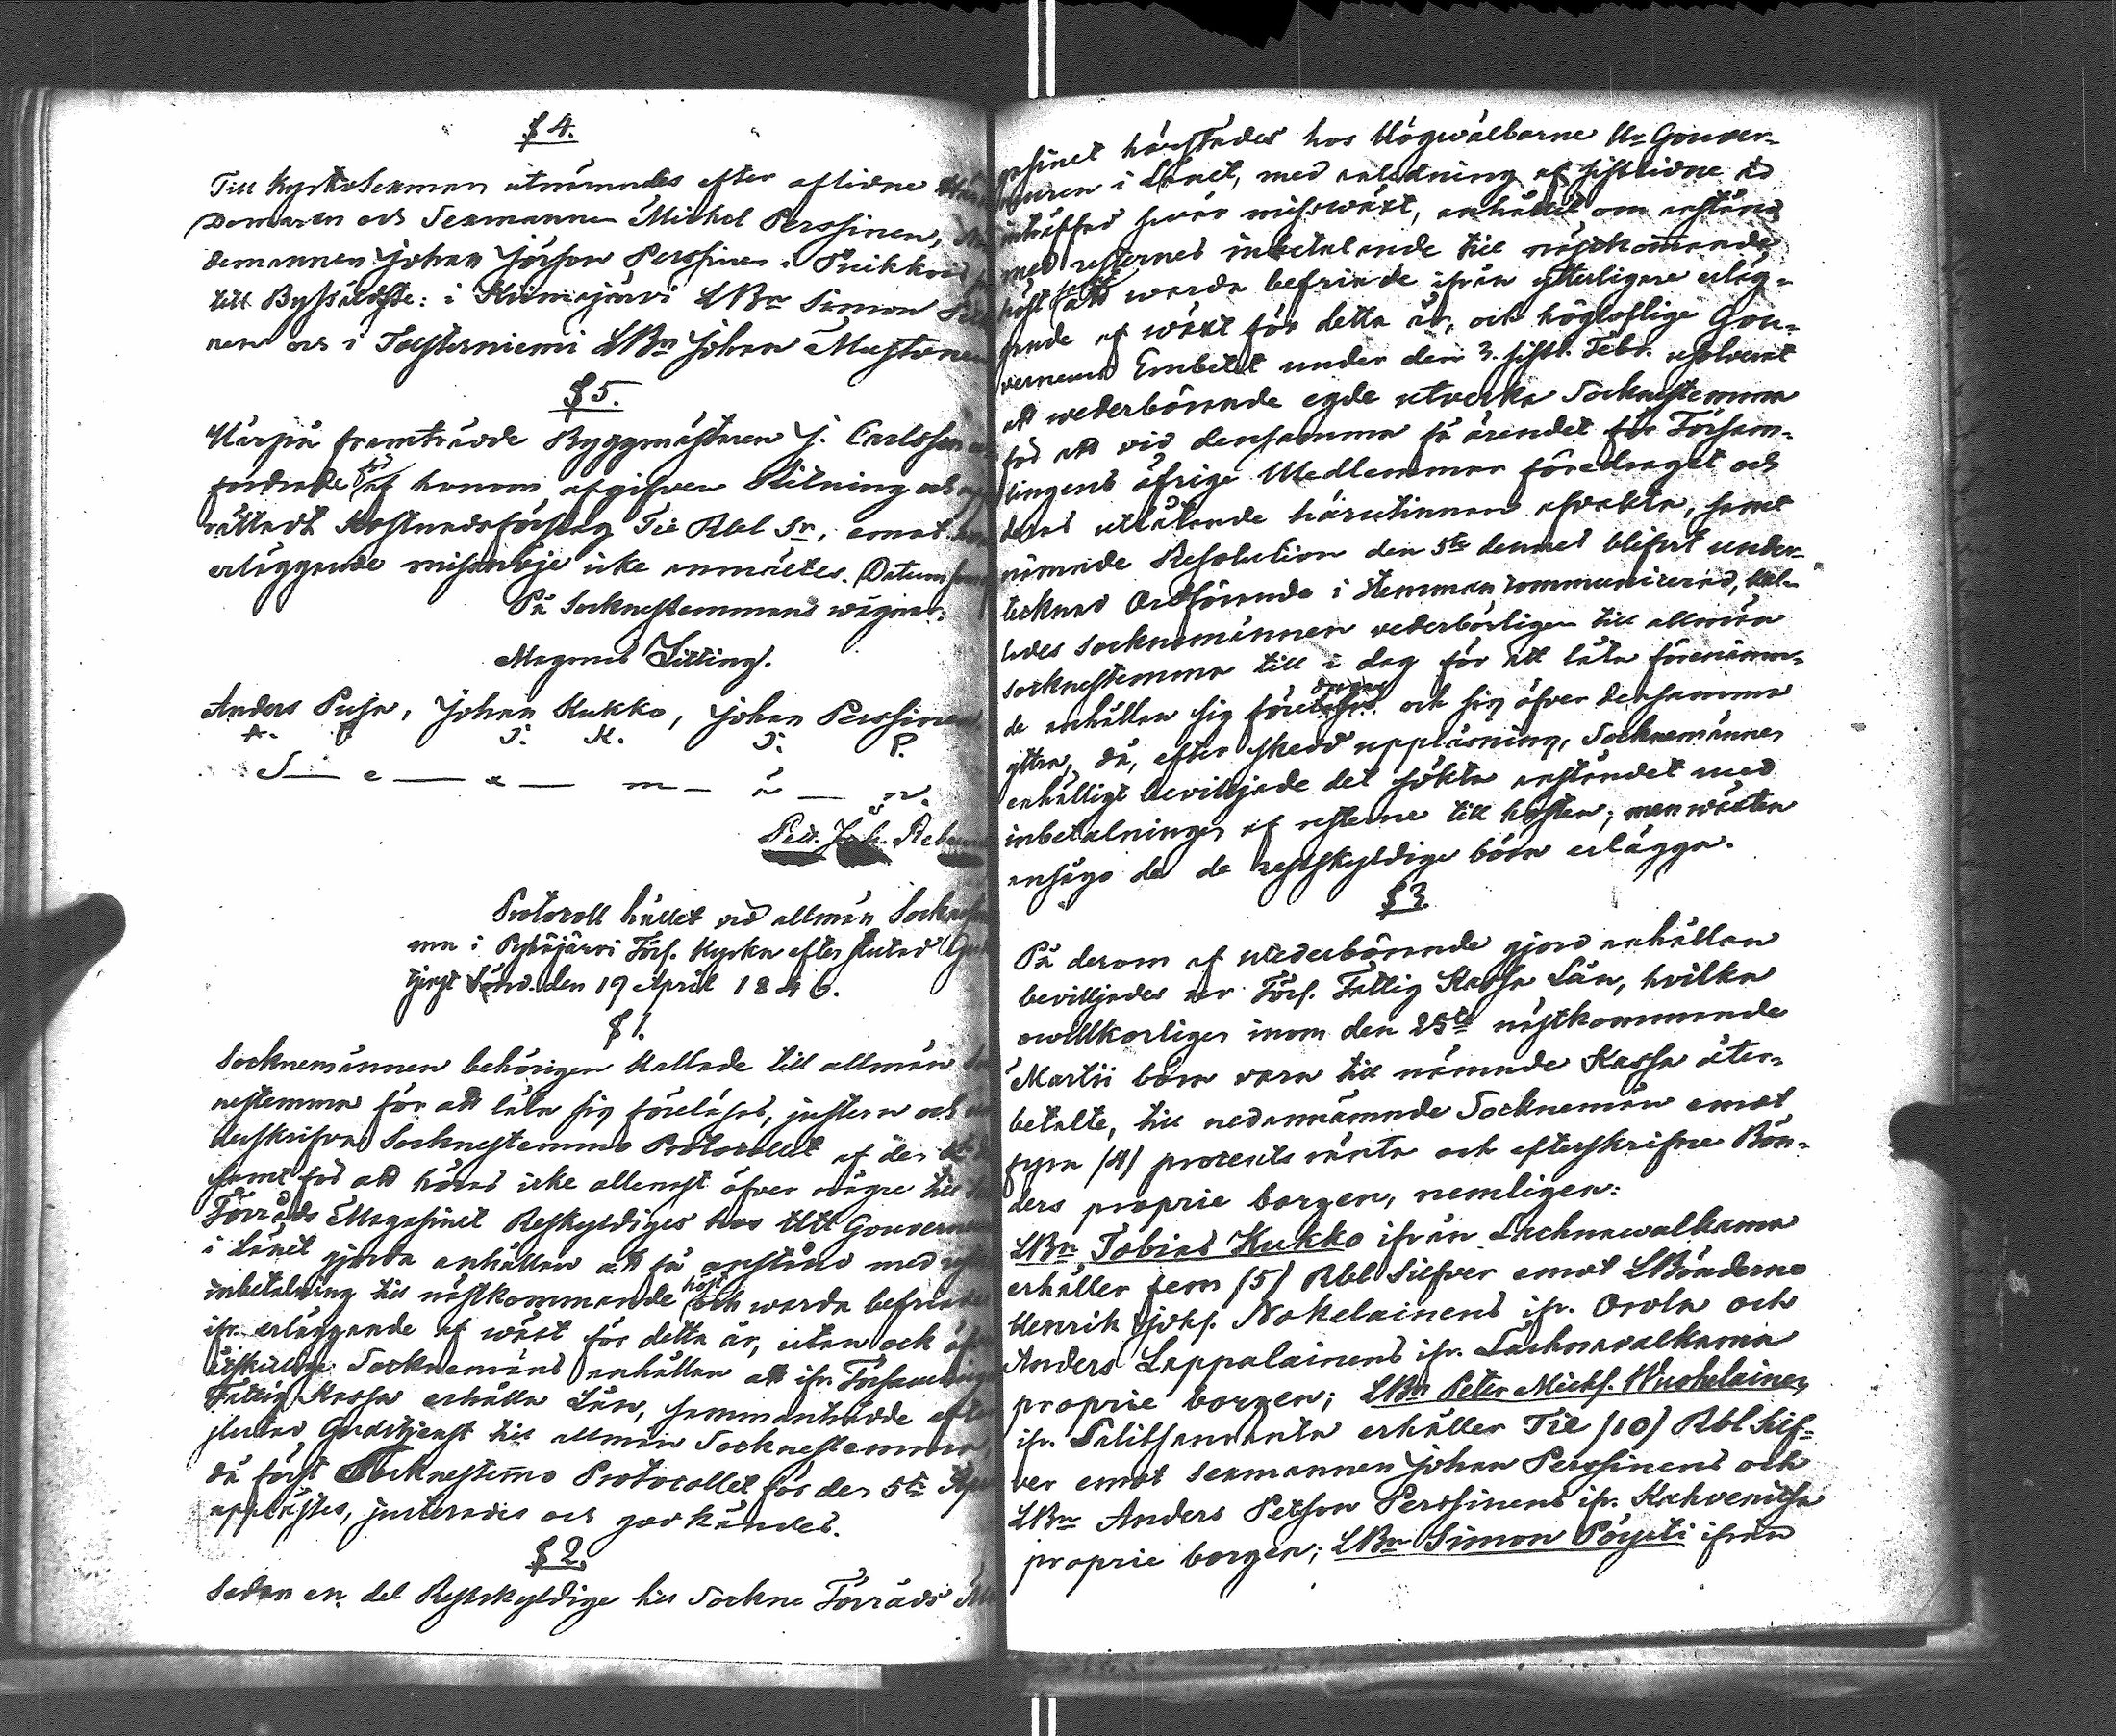 § 4.
Till Kyrkosexman utnämndes efter aflidne
Domaren och Sexmannen Michel Perssinen,
demannen Johan Jörson Perssinen i
till Byssåldste: i Kiimajärvi LBn Simon
nen och i Tasterniemi LBn Johan Mustonen
§ 5.
Härpå framträdde Byggmästaren J. Carlsson
fordrade för af honom afgifven Ritning och
rättadt Kostnadsförslag Tie Rbl Sr, emot
erläggande missnöje icke anmältes. Datum
På Socknestemmans wägnar:
Magnus Litting.
Anders Pusa, Johan Kukko, Johan Perssinen
A. P. J. K. J. P.
S — e — x — m — ä — n.
Pett. Joh.
Protocoll hållet vid allmän
ma i Pyhäjärvi Förs. Kyrka efter slutad
tjenst Sönd. den 19 April 1846.
§ 1.
Socknemännen behörigen kallade till allmän
nestemma för att låta sig föreläsas, justera och
derskrifva Socknestemmo Protocollet af den
samt för att höras icke allenast öfver någre till
Förråds Magasinet Restskyldiges hos Hr Gouverneuren
i Länet gjorda anhållan att få anstånd med
inbetalning till nästkommande höst och warda befriade
ifr. erläggande af wäxt för detta år, utan ock
särskildte Socknemäns anhållan att ifr. Församlingens
Fattig Kassa erhålla Lån, sammanträdde efter
slutad Gudstjenst till allmän Socknestemma
då först Socknestemmo Protocollet för den 5te April
upplästes, justerades och godkändes.
§ 2.
Sedan en del Restskyldige till Sockne Förråds
gasinet härstädes hos Högwälborne Hr Gouver-
neuren i Länet, med anledning af sistlidne år
inträffad svår missväxt, anhållit om anstånd
med resternes inbetalande till nästkommande
höst samt att warda befriade ifrån ytterligare erläg-
gande af wäxt för detta år, och höglofliga Gou-
verneurs Embetet under den 3. sistl. Febr. resolverat
att wederbörande egde utverka Socknestemma
för att vid densamma få ärendet för Försam-
lingens öfrige Medlemmar föredraget och
deras utlåtande härutinnan afvakta, samt
nämnde Resolution den 5te dennes blifvit under-
tecknad Ordförande i stemman communicerad, kal-
lades Socknemännen vederbörligen till allmän
socknestemma till i dag för att låta förenämn-
de anhållan sig föredragas och sig öfver densamma
yttra, då, efter skedd uppläsning, Socknemännen
enhälligt bevilljade det sökta anståndet med
inbetalningen af resterne till hösten; men wäxten
ansågo de de restskyldige böra erlägga.
§ 3.
På derom af wederbörande gjord anhållan
bevilljades ur Förs. Fattig Kassa Lån, hvilka
owillkorligen inom den 25te nästkommande
Martii böra vara till nämnde Kassa åter-
betalte, till nedannämnde Socknemän emot
fyra (4) procents ränta och efterskrifne Bön-
ders proprie borgen, nemligen:
LBn Tobias Kukko ifrån Lachnawalkama
erhåller fem (5) Rbl Silfver emot LBönderne
Henrik Johs. Nokelainens ifr. Orola och
Anders Lappalainens ifr. Lachnavalkama
proprie borgen; LBn Peter Michs. Wuohelainen
ifr. Salitsanranta erhåller Tie (10) Rbl Silf-
ver emot sexmannen Johan Perssinens och
LBn Anders Petson Perssinens ifr. Kahvenitsa
proprie borgen; LBn Simon Pöysti ifrån